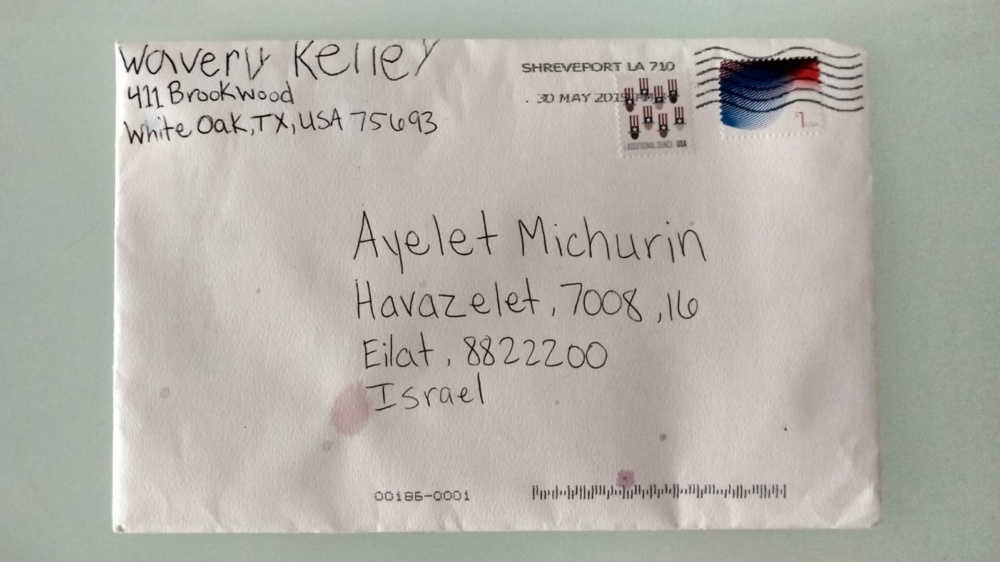 Wavery Kelley
411 Brookwood
White Oak, TX, USA 75693
SHREVEPORT LA 710
30 MAY 2019 PM
ADDITIONAL OUNCE USA
Ayelet Michurin
Havazelet, 7008, 16
Eilat, 8822200
Israel
00186-0001